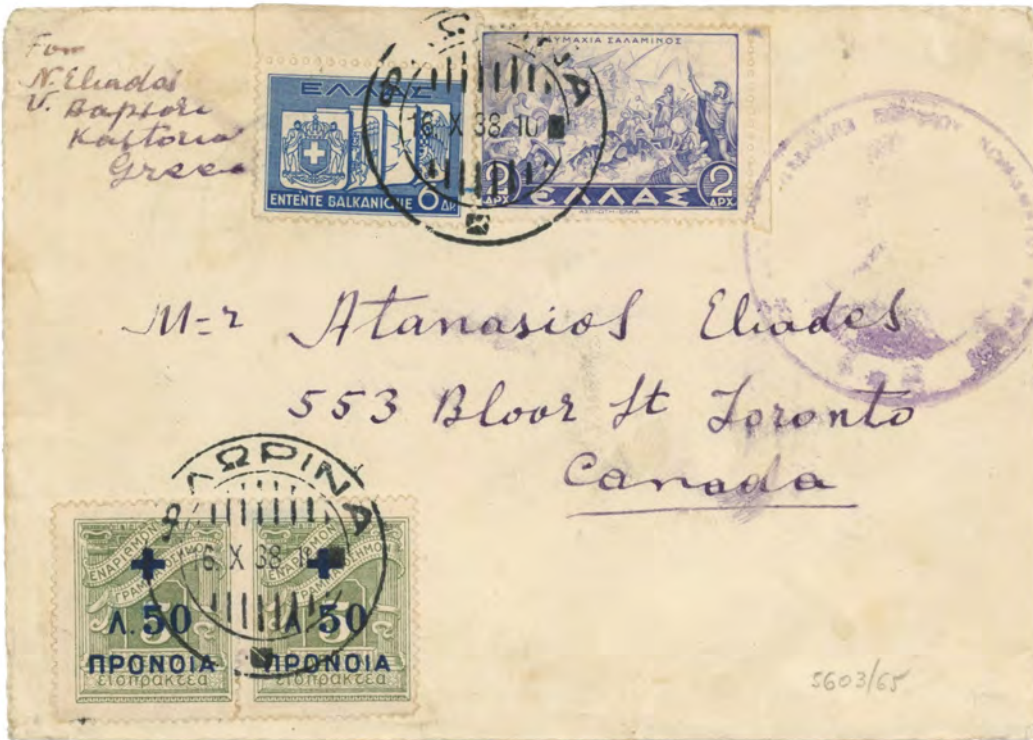 From
N. Eliades
V.
Kastoria
Greece
ΕΛΛΑΣ
ENTENTE BALKANIQUE 8 ΔΡ
16 X 38 10
ΝΑΥΜΑΧΙΑ ΣΑΛΑΜΙΝΟΣ
2 ΔΡΧ ΕΛΛΑΣ 2 ΔΡΧ
M=r Atanasios Eliades
553 Bloor St Toronto
Canada
ΦΛΩΡΙΝΑ
16 X 38
ΕΝΑΡΙΘΜΟΝ
ΓΡΑΜΜΑΤΟΣΗΜΟΝ
Λ. 50
ΠΡΟΝΟΙΑ
εισπρακτέα
ΕΝΑΡΙΘΜΟΝ
ΓΡΑΜΜΑΤΟΣΗΜΟΝ
Λ 50
ΠΡΟΝΟΙΑ
εισπρακτέα
5603/65